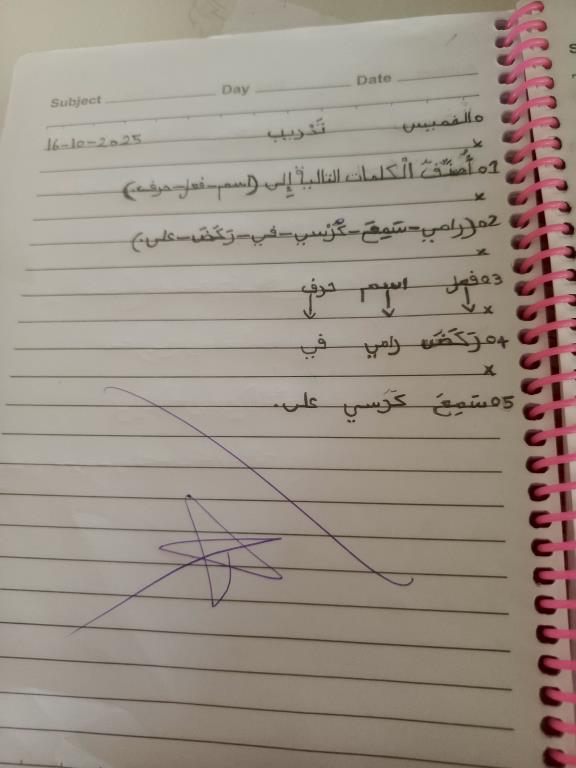 Subject Day Date
الخميس تدريب 16-10-2025
1 أُصنّفُ الْكلمات التالية إلى (اسم-فعل-حرف.)
2 (رامي-سَمِعَ-كُرْسي-في-رَكَضَ-على.)
3 فعل اسم حرف
4 رَكَضَ رامي في
5 سَمِعَ كَرْسي على.